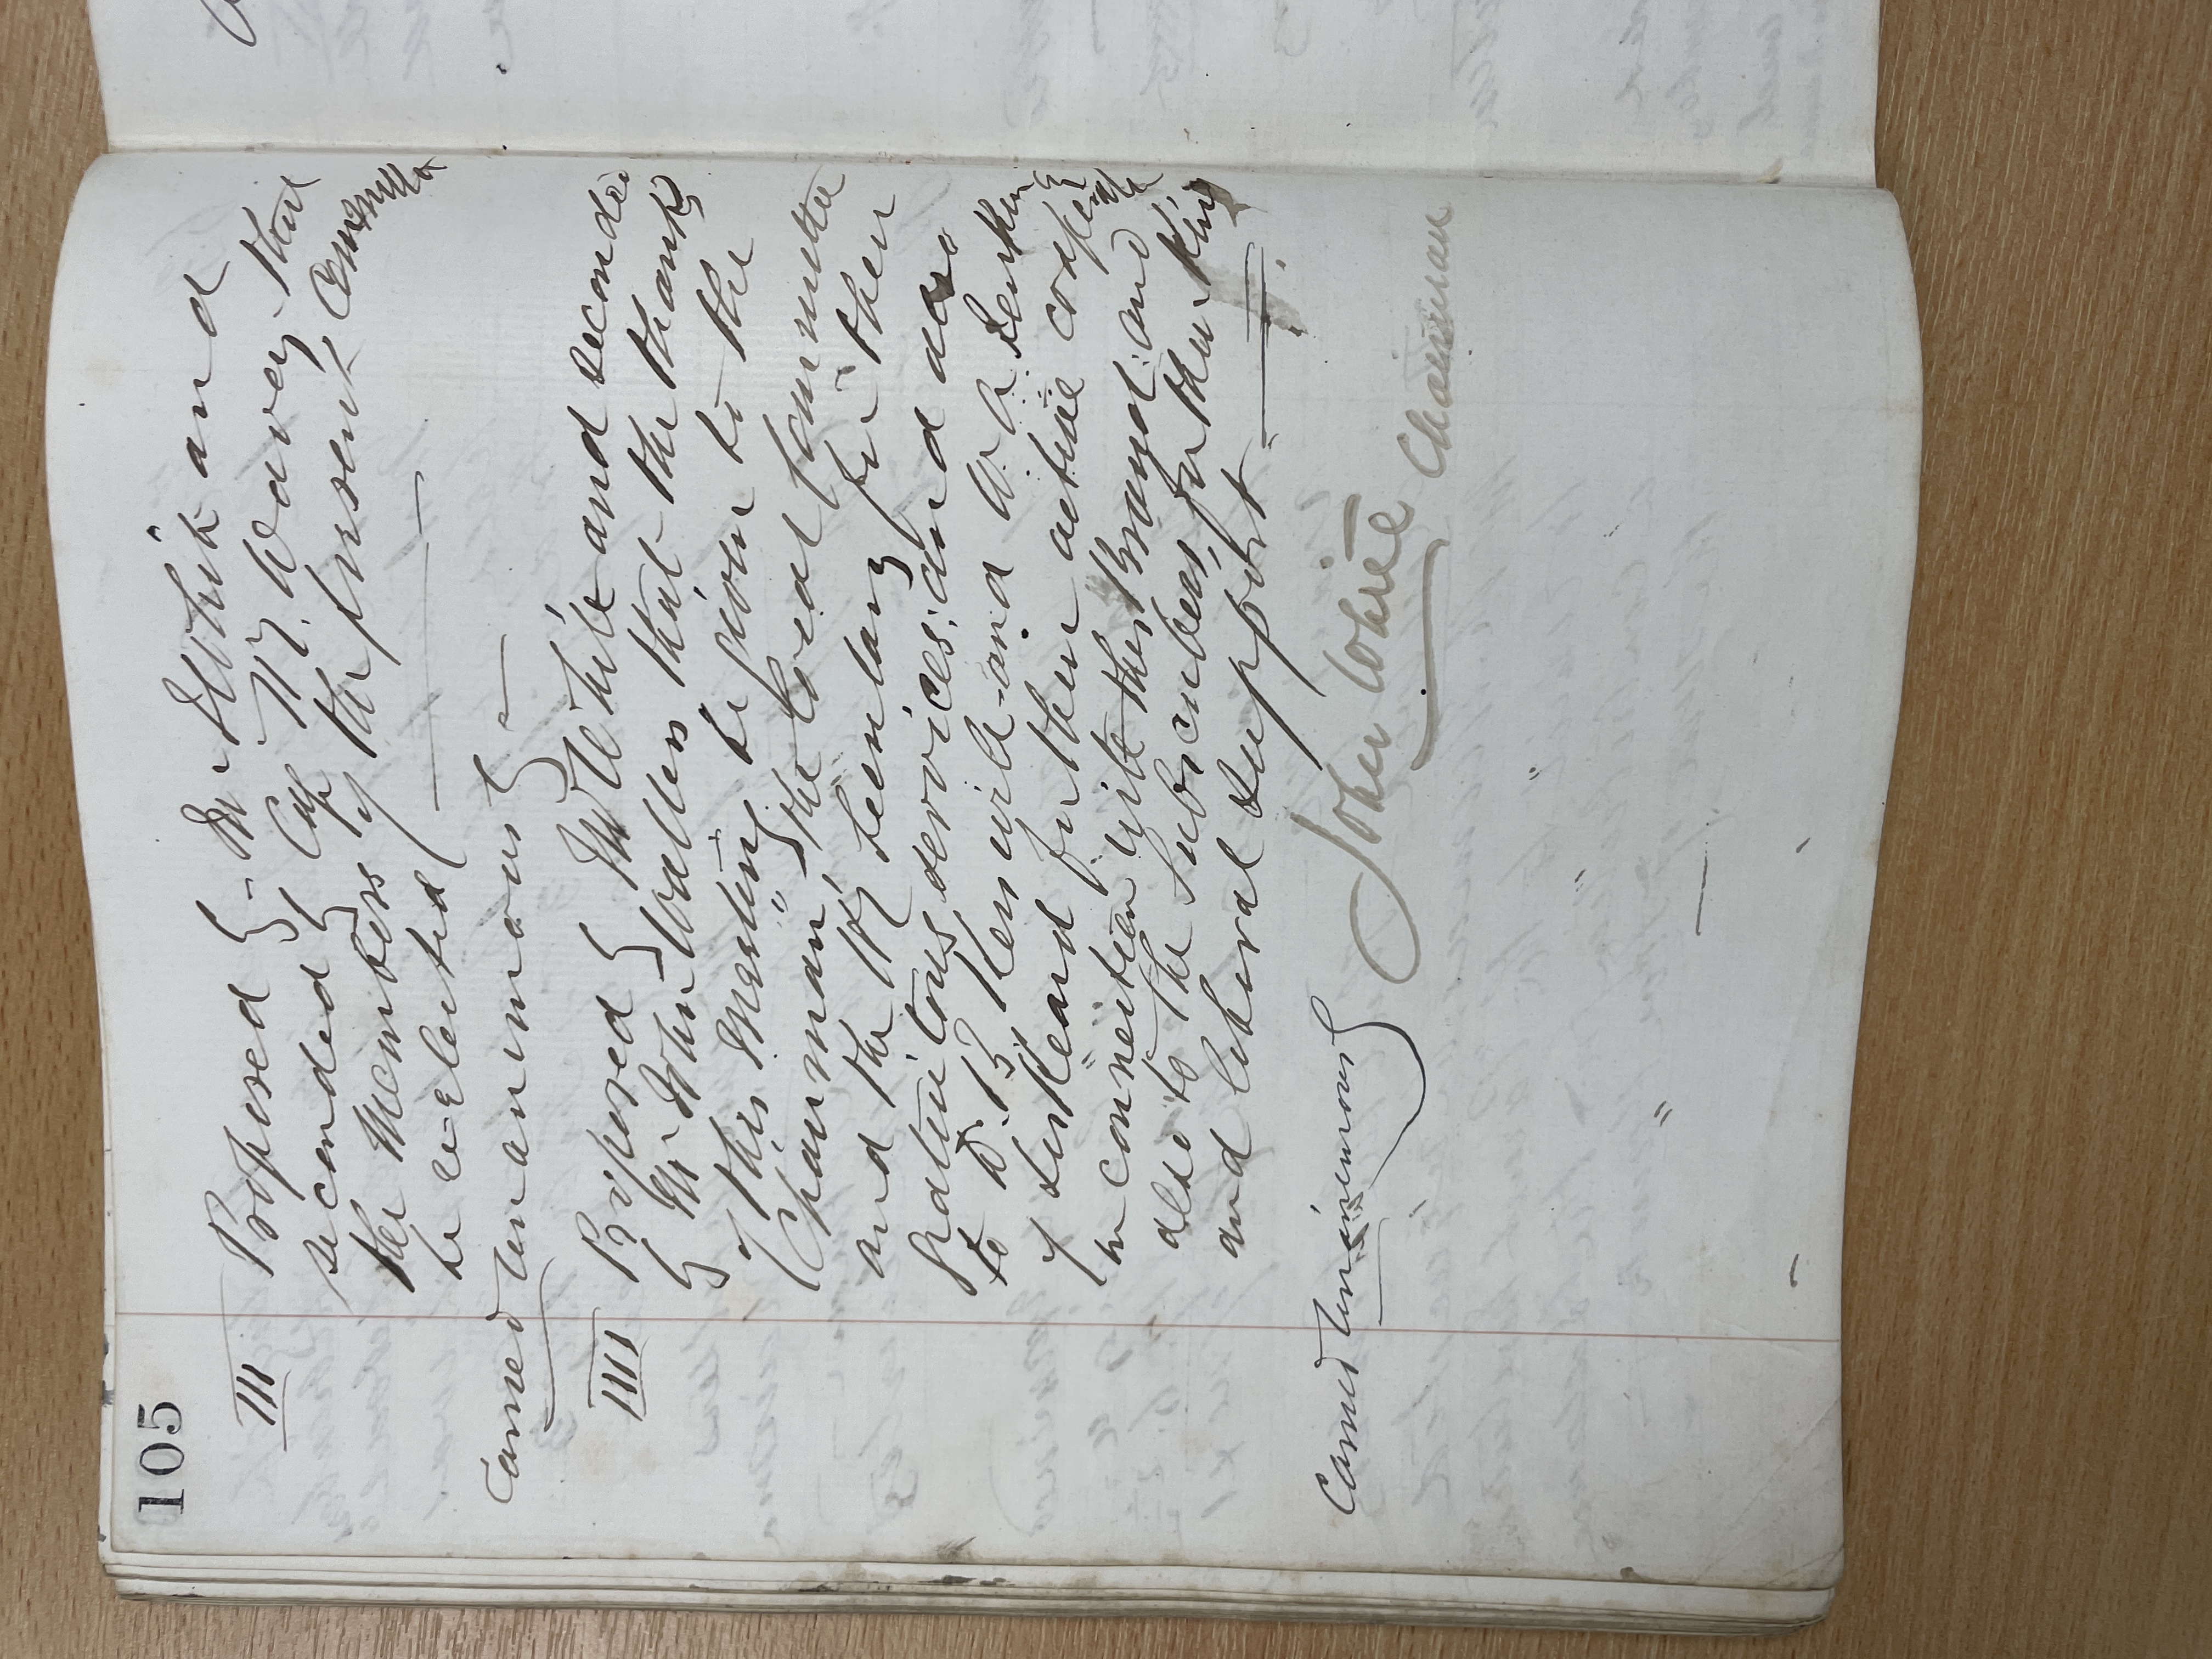 105
III Proposed } Mr Elphick and
seconded by Capt Hy. Davey that
the Members of the present Committee
be re-elected
Carried unanimously
IIII Proposed } Mr White and seconded
by Mr John Walles that the thanks
of this Meeting be given to the
Chairman, the Local Committee
and the Hy Secretary for their
gratuitous services, and also
to D. B. Kenwill and W. A. Jenkin
of Liskeard for their active cooperation
in connection with the Branch and
also to the Subscribers for their kind
and liberal support
Carried Unanimously
John White Chairman